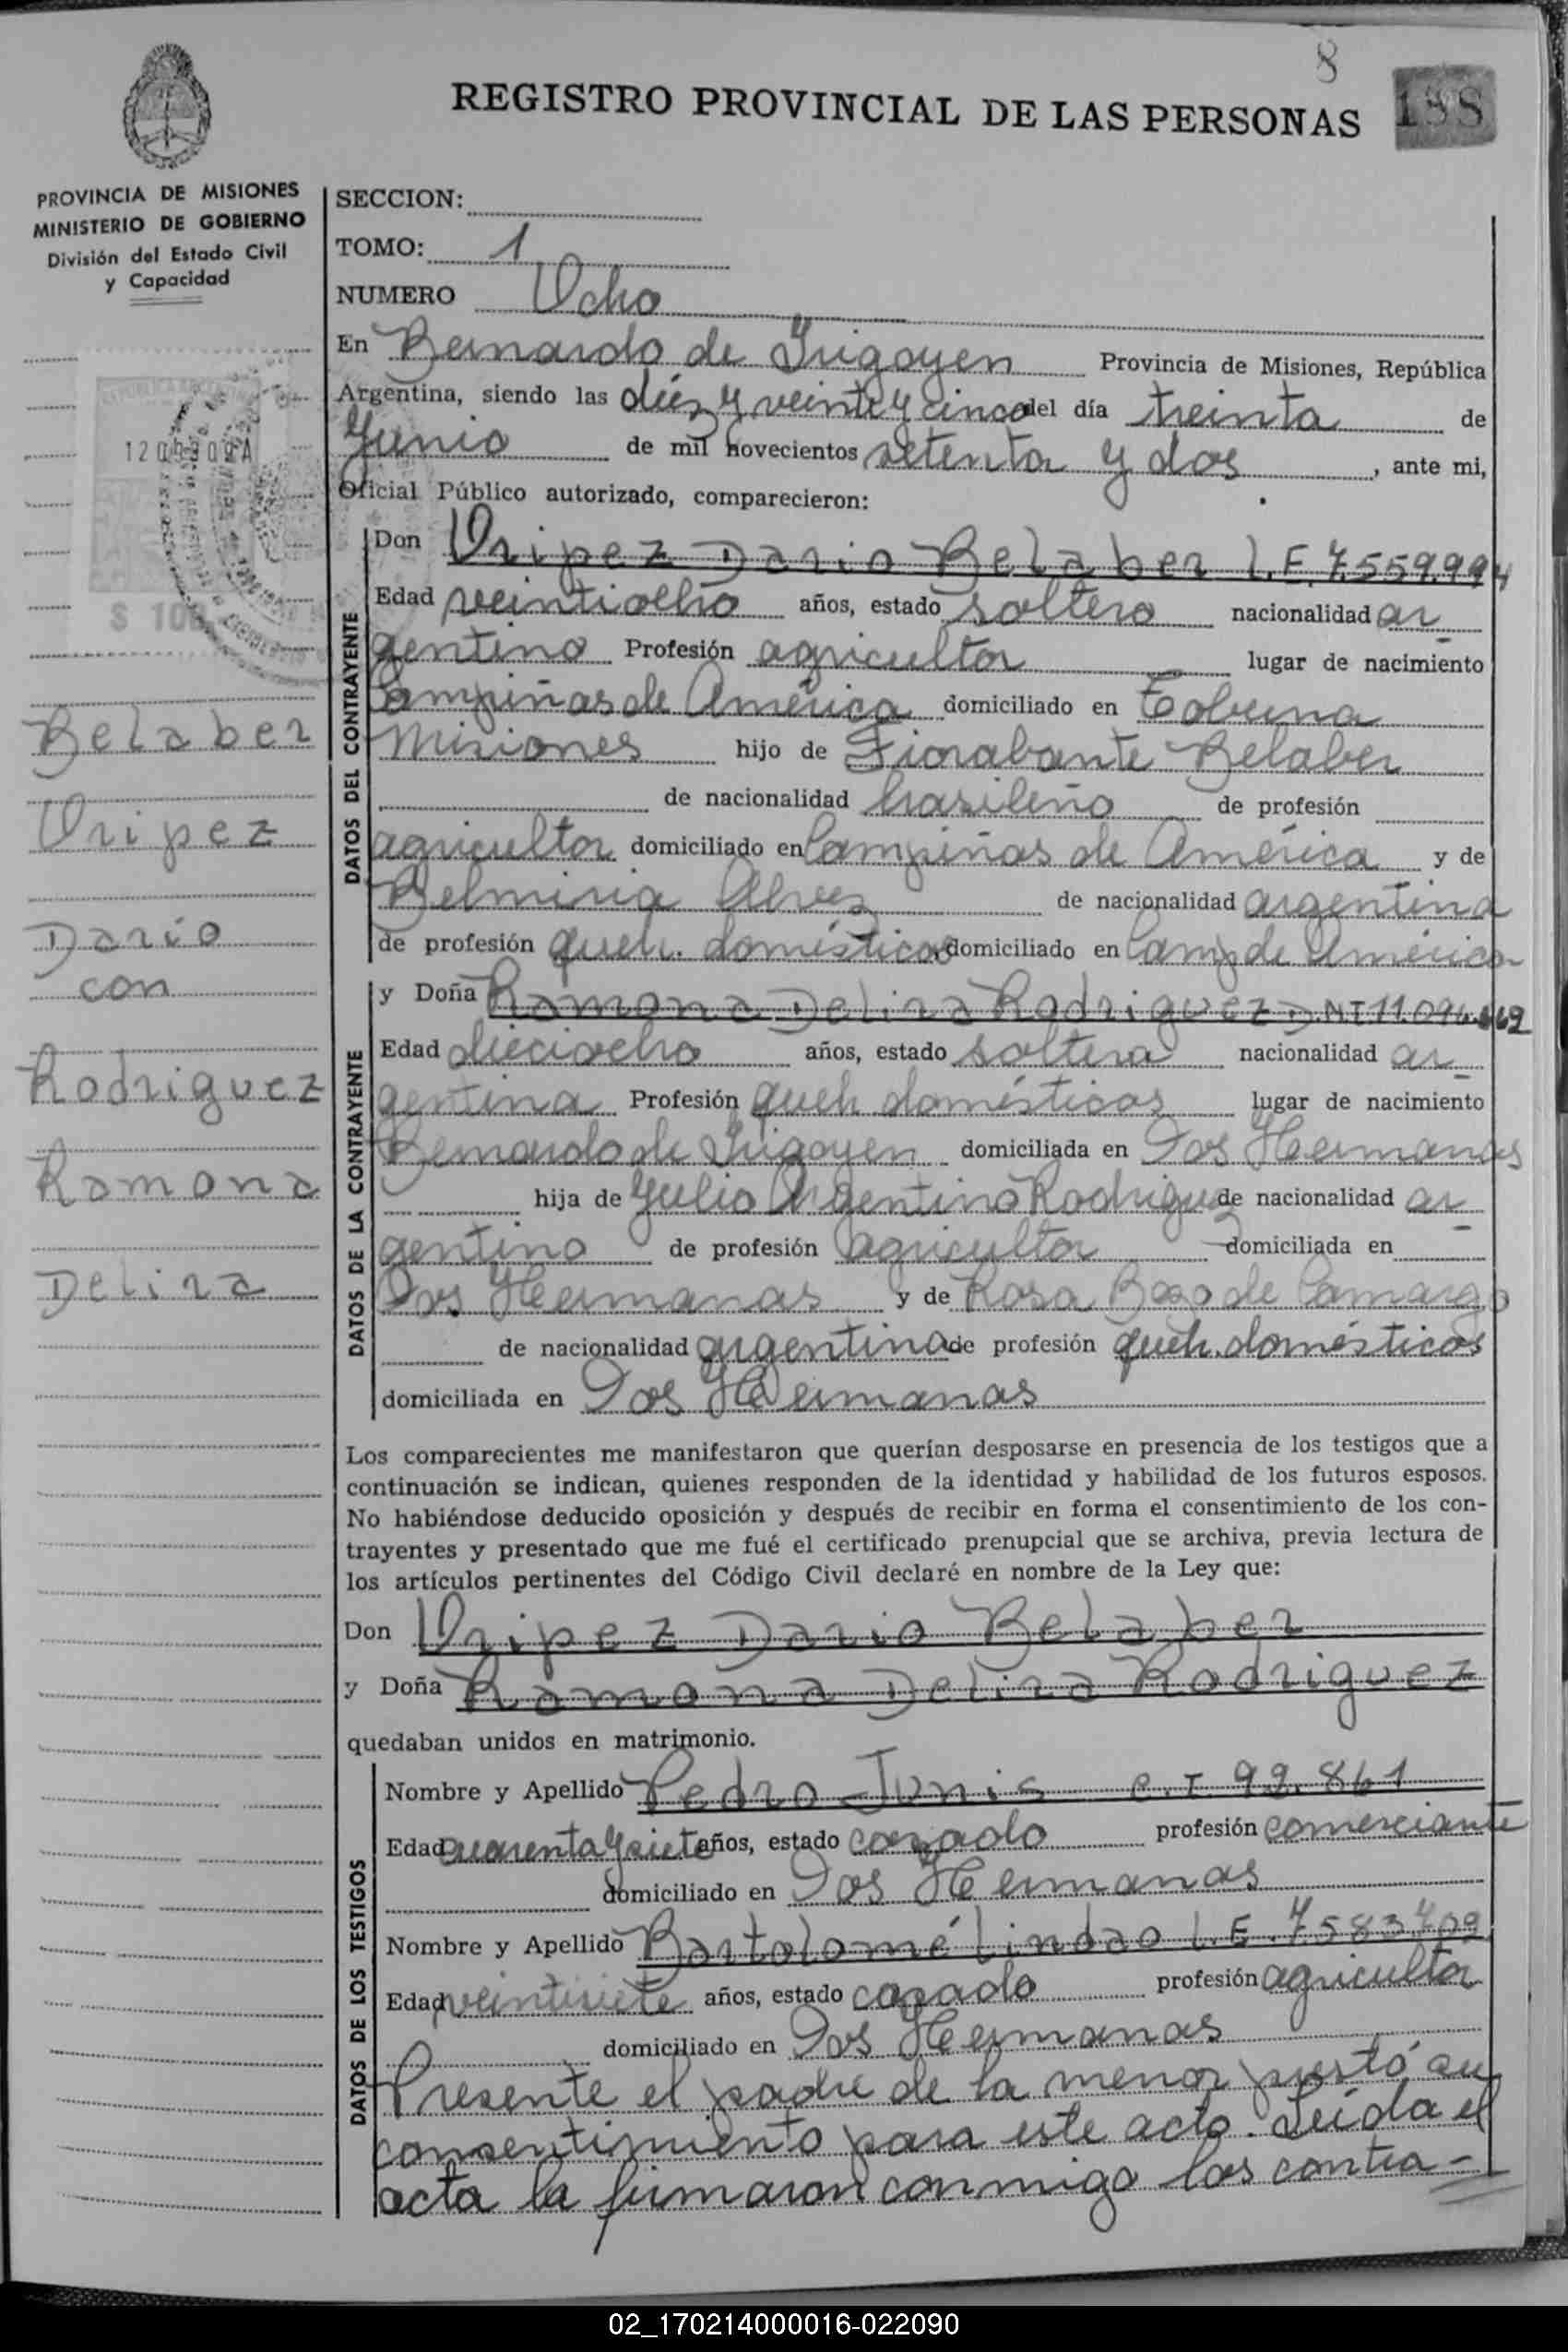 8
REGISTRO PROVINCIAL DE LAS PERSONAS
188
PROVINCIA DE MISIONES
MINISTERIO DE GOBIERNO
División del Estado Civil
y Capacidad
SECCION:
TOMO: 1
NUMERO Ocho
En Bernardo de Irigoyen Provincia de Misiones, República
Argentina, siendo las diéz y veinte y cinco del día treinta de
Junio de mil novecientos setenta y dos, ante mi,
Oficial Público autorizado, comparecieron:
DATOS DEL CONTRAYENTE
Don Oripez Dario Belaber L.E. 7.559.994
Edad veintiocho años, estado soltero nacionalidad ar
gentino Profesión agricultor lugar de nacimiento
Campiñas de América domiciliado en Cobuna
Misiones hijo de Fiorabante Belaber
de nacionalidad brasileño de profesión
agricultor domiciliado en Campiñas de América y de
Belmiria Alvez de nacionalidad argentina
de profesión queh. domésticos domiciliado en Camp de América
DATOS DE LA CONTRAYENTE
y Doña Ramona Delira Rodriguez D.N.I 11.094.
Edad dieciocho años, estado soltera nacionalidad ar
gentina Profesión queh domésticos lugar de nacimiento
Bernardo de Irigoyen domiciliada en Dos Hermanas
hija de Julio Argentino Rodriguez de nacionalidad ar
gentino de profesión agricultor domiciliada en
Dos Hermanas y de Rosa de Camargo
de nacionalidad argentina de profesión queh. domésticos
domiciliada en Dos Hermanas
Los comparecientes me manifestaron que querían desposarse en presencia de los testigos que a
continuación se indican, quienes responden de la identidad y habilidad de los futuros esposos.
No habiéndose deducido oposición y después de recibir en forma el consentimiento de los con-
trayentes y presentado que me fué el certificado prenupcial que se archiva, previa lectura de
los artículos pertinentes del Código Civil declaré en nombre de la Ley que:
Don Oripez Dario Belaber
y Doña Ramona Delira Rodriguez
quedaban unidos en matrimonio.
DATOS DE LOS TESTIGOS
Nombre y Apellido Pedro Junis C.I 92.861
Edad cuarenta y siete años, estado casado profesión comerciante
domiciliado en Dos Hermanas
Nombre y Apellido Bartolomé Lindao L.E. 7583409
Edad veintisiete años, estado casado profesión agricultor
domiciliado en Dos Hermanas
Presente el padre de la menor prestó su
consentimiento para este acto. Leída el
acta la firmaron conmigo los contra-
Belaber
Oripez
Dario
con
Rodriguez
Ramona
Delira
02_170214000016-022090